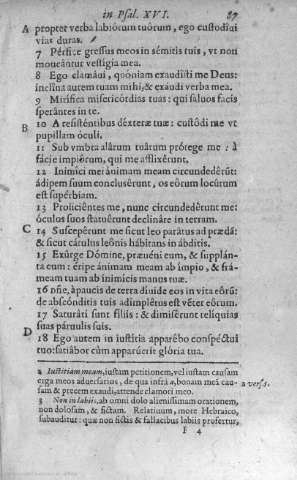 in Psal. XVI. 87
A propter verba labiórum tuórum, ego custodíui
vias duras.
7 Pérfice gressus meos in sémitis tuis, vt non
moueántur vestígia mea.
8 Ego clamáui, quóniam exaudísti me Deus:
inclína aurem tuam mihi, & exáudi verba mea.
9 Mirífica misericórdias tuas: qui saluos facis
sperántes in te.
B
10 A resisténtibus déxteræ tuæ: custódi me vt
pupíllam óculi.
11 Sub vmbra alárum tuárum prótege me: à
fácie impiórum, qui me afflixérunt.
12 Inimíci mei ánimam meam circundedérũt:
ádipem suum conclusérunt, os eórum locútum
est supérbiam.
13 Proiiciéntes me, nunc circundedérunt me:
óculos suos statuérunt declináre in terram.
C 14 Suscepérunt me sicut leo parátus ad prædã:
& sicut cátulus leónis hábitans in ábditis.
15 Exúrge Dómine, præuéni eum, & supplán-
ta eum: éripe ánimam meam ab ímpio, & frá-
meam tuam ab inimícis manus tuæ.
16 Dñe, à paucis de terra díuide eos in vita eórũ:
de abscónditis tuis adimplétus est véter eórum.
17 Saturáti sunt fíliis: & dimisérunt relíquias
suas páruulis suis.
D
18 Ego autem in iustítia apparébo conspéctui
tuo: satiábor cùm apparúerit glória tua.
2 Iustitiam meam, iustam petitionem, vel iustam causam
erga meos aduersarios, de qua infrà a, bonam meã cau-
sam & precem exaudi, attende clamori meo. a vers. 1.
3 Non in labiis, ab omni dolo alienissimam orationem,
non dolosam, & fictam. Relatiuum, more Hebraico,
subauditur: quæ non fictis & fallacibus labiis profertur,
F 4